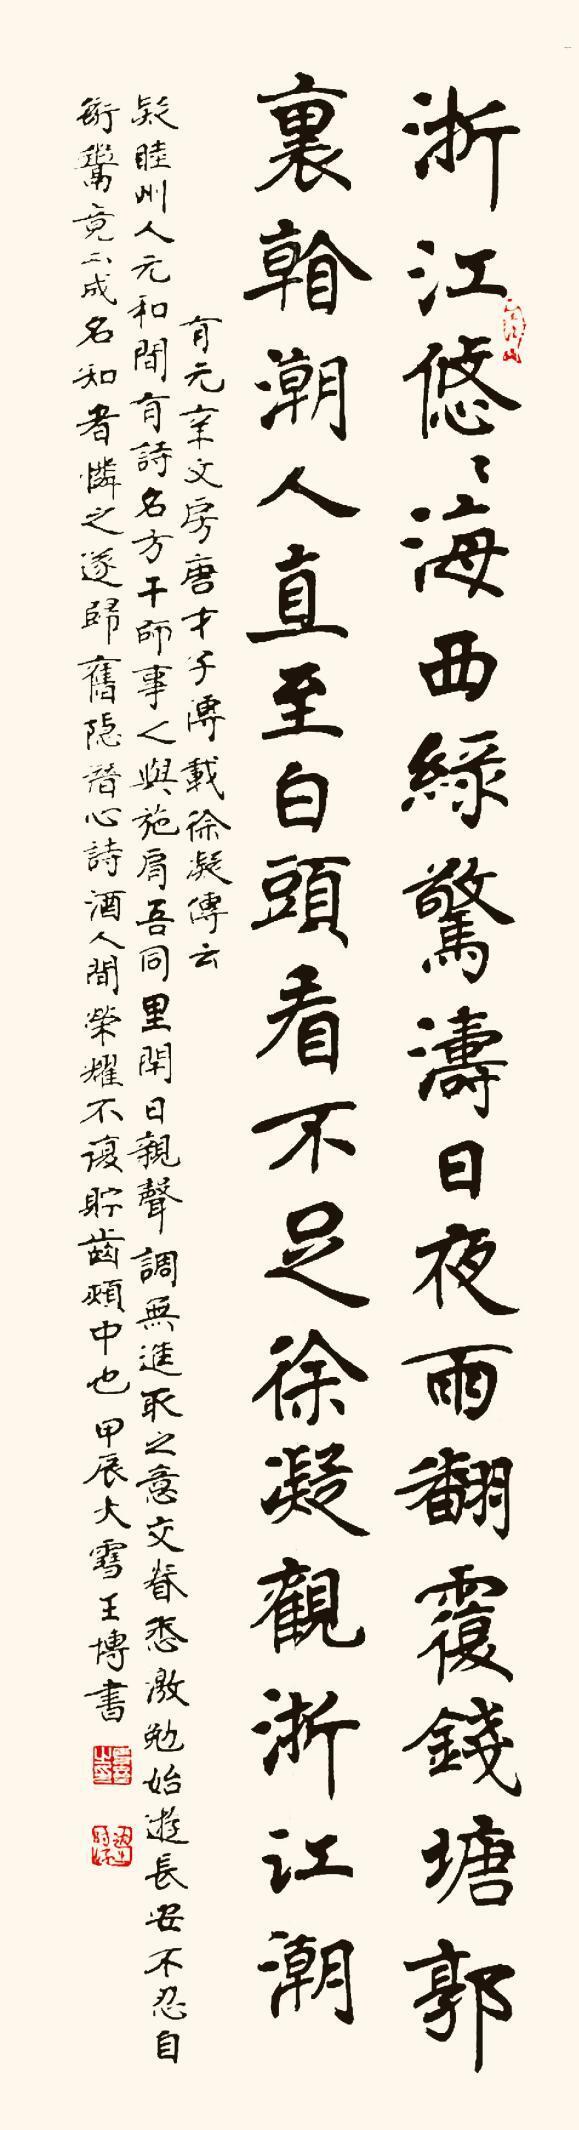 浙江悠〻海西綠驚濤日夜兩翻覆錢塘郭
裏看潮人直至白頭看不足徐凝觀浙江潮
有元辛文房唐才子傳載徐凝傳云
凝睦州人元和間有詩名方干師事之與施肩吾同里閈日親聲調無進取之意交眷悉激勉始遊長安不忍自
衒鬻竟不成名知者憐之遂歸舊隱潛心詩酒人間榮耀不復貯齒頰中也甲辰大雪王博書